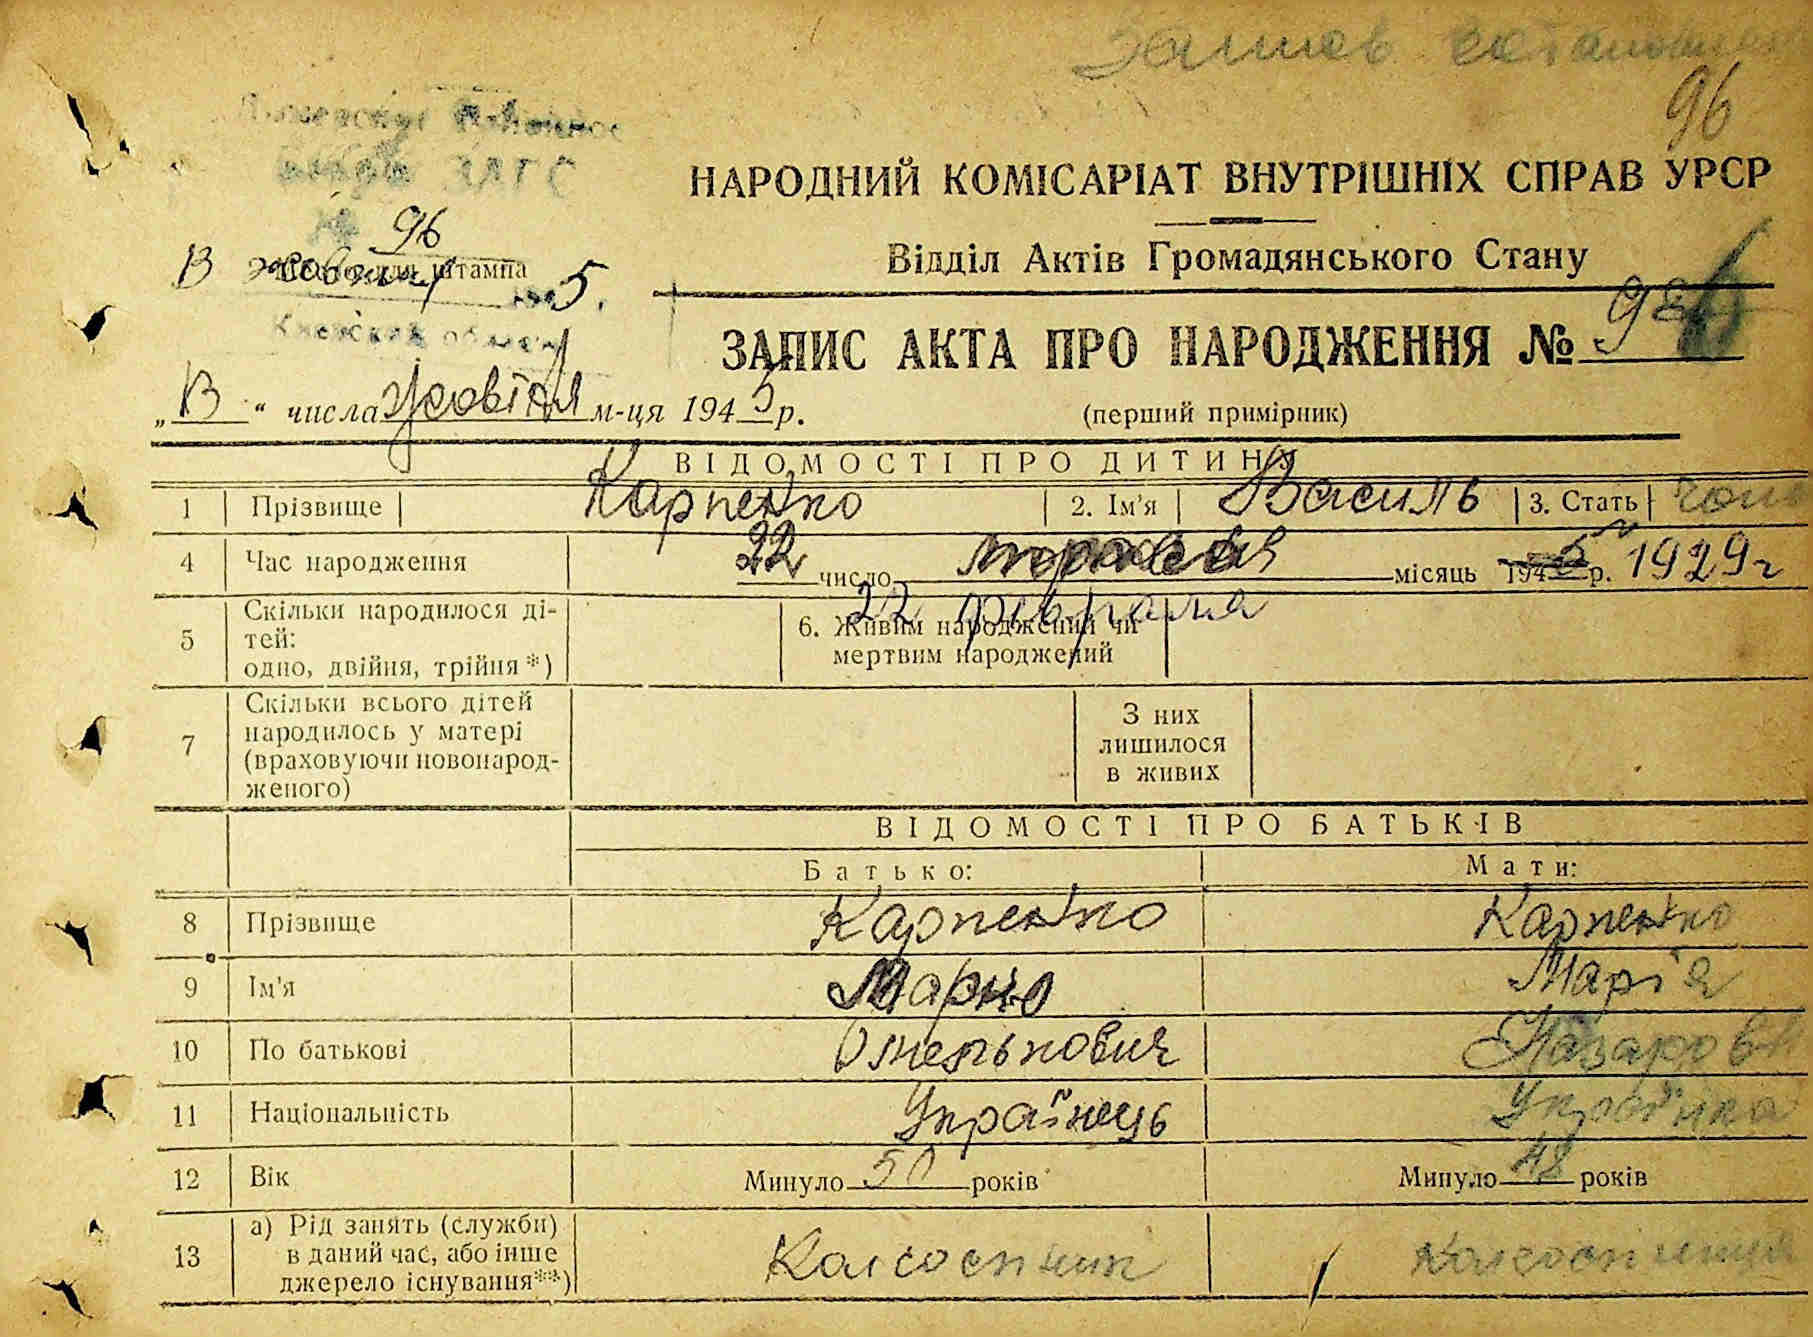 Запись
96
ЗАГС
НАРОДНИЙ КОМІСАРІАТ ВНУТРІШНІХ СПРАВ УРСР
96
Відділ Актів Громадянського Стану
штампа 5
Киевская
ЗАПИС АКТА ПРО НАРОДЖЕННЯ №
„ “ числа жовтня м-ця 1945 р.
(перший примірник)
ВІДОМОСТІ ПРО ДИТИНУ
1 Прізвище Карпенко 2. Ім'я Василь 3. Стать
4 Час народження 22 число місяць 194 р. 1929 г
22 февраля
5 Скільки народилося ді-
тей:
одно, двійня, трійня *)
6. Живим народжений чи
мертвим народжений
7 Скільки всього дітей
народилось у матері
(враховуючи новонарод-
женого)
З них
лишилося
в живих
ВІДОМОСТІ ПРО БАТЬКІВ
Батько: Мати:
8 Прізвище Карпенко Карпенко
9 Ім'я Марко Марія
10 По батькові Омелькович Назаровн
11 Національність Українець Українка
12 Вік Минуло 50 років Минуло 48 років
13 а) Рід занять (служби)
в даний час, або інше
джерело існування**)
Колгоспник